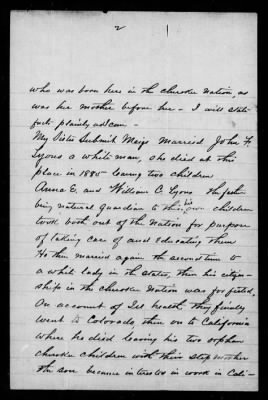 2
who was born here in the Cherokee Nation, as
was his mother before her - I will state
facts plainly as I can -
My Sister Submit Meigs Married John F.
Lyons a white man, she died at this
place in 1880 leaving two children
Anna E. and William C. Lyons the father
being natural guardian to his own children
took both out of the Nation for purpose
of taking care of and Educating them
He then married again the second time to
a white lady in the States, then his citizen-
ship in the Cherokee Nation was forfeited.
On account of Ill health, they finally
went to Colorado, then on to California
where he died leaving his two orphan
Cherokee Children with their step mother
the son became interested in work in Cali-